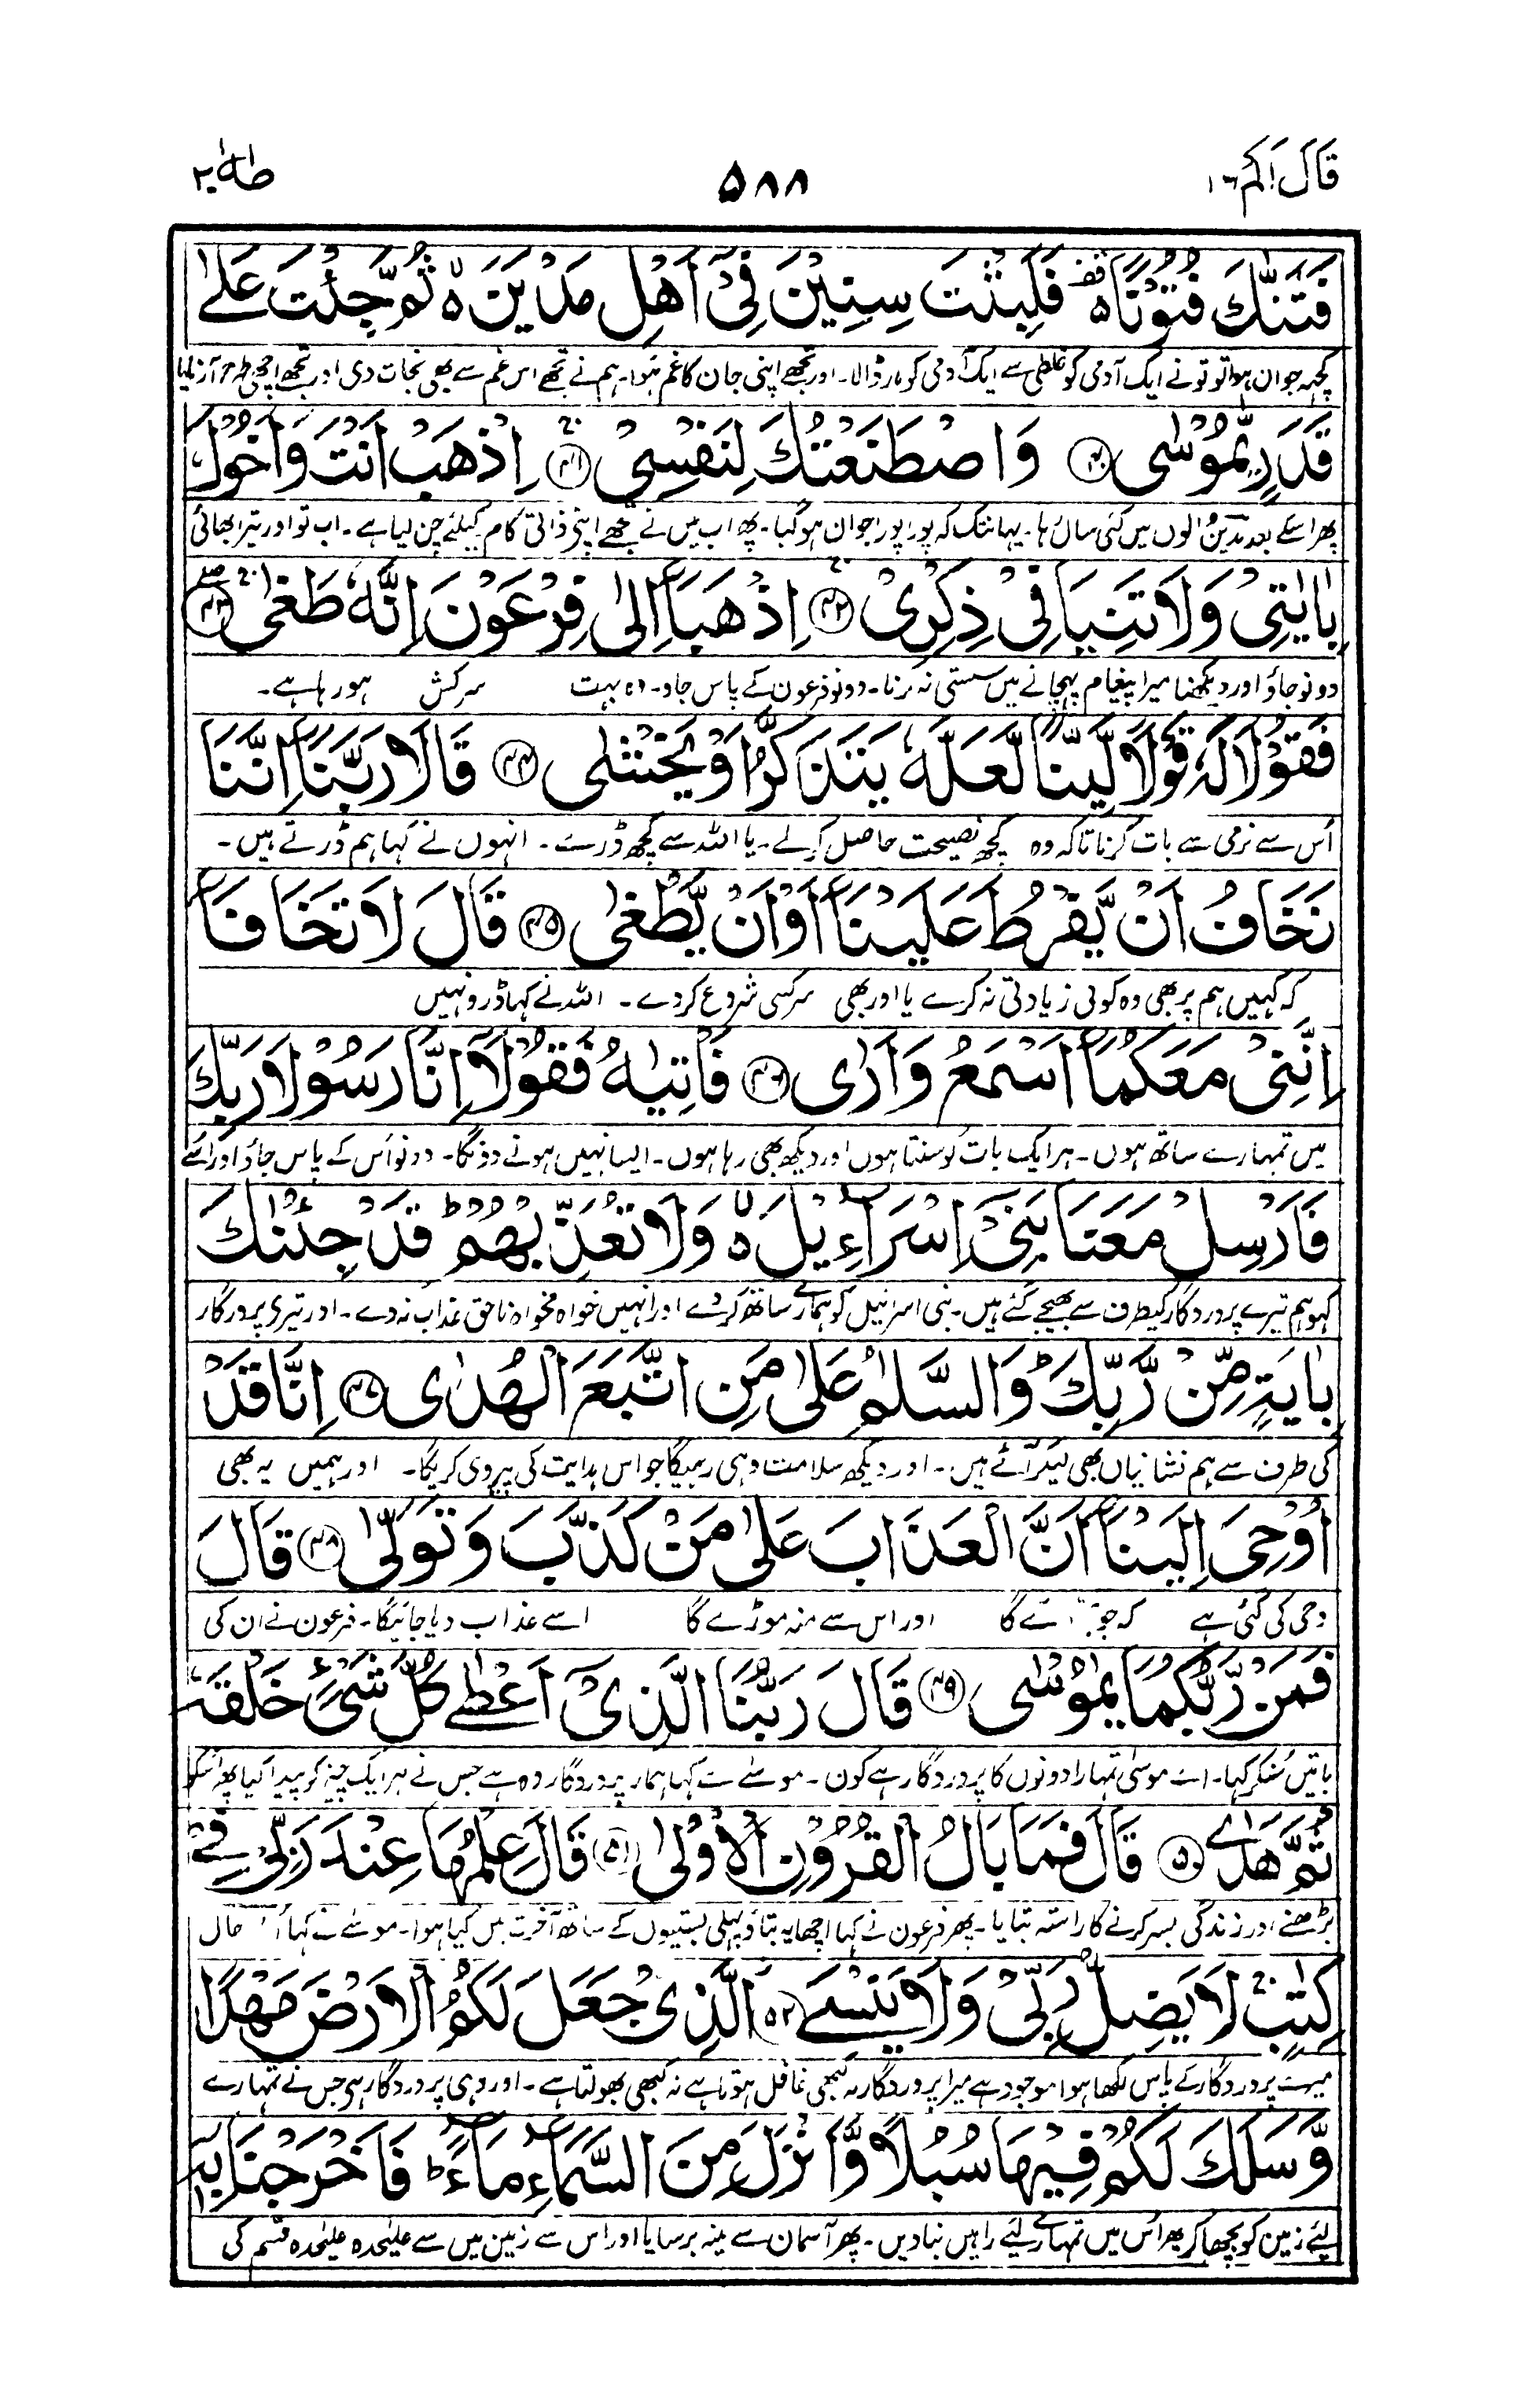 قَالَ اَلَمْ ١٦
٥٨٨
طٰهٰ ٢٠
فَتَنّٰكَ فُتُوْنًا ۥ۫ قف فَلَبِثْتَ سِنِيْنَ فِيْٓ اَهْلِ مَدْيَنَ ۥۙ ثُمَّ جِئْتَ عَلٰى
کچہہ جوان ہوا تو تو نے ایک آدمی کو غلطی سے ایک آدمی کو مار ڈالا۔ اور تجھے اپنی جان کا غم ہوا۔ ہم نے تجھے اس غم سے بھی نجات دی اور تجھے اچھی طرح آزمایا
قَدَرٍ يّٰمُوْسٰى ﴿٤٠﴾ وَاصْطَنَعْتُكَ لِنَفْسِيْ ﴿٤١﴾ اِذْهَبْ اَنْتَ وَاَخُوْكَ
پھر اسکے بعد مدین والوں میں کئی سال رہا۔ یہانتک کہ پورا پورا جوان ہو گیا۔ پھر اب میں نے تجھے اپنے ذاتی کام کیلئے چن لیا ہے۔ اب تو اور تیرا بھائی
بِاٰيٰتِيْ وَلَا تَنِيَا فِيْ ذِكْرِيْ ﴿٤٢﴾ اِذْهَبَآ اِلٰى فِرْعَوْنَ اِنَّهٗ طَغٰى ﴿٤٣﴾
دونو جاؤ اور دیکھنا میرا پیغام پہچانے میں سستی نہ کرنا۔ دونو فرعون کے پاس جاو۔ وہ بہت سرکش ہو رہا ہے۔
فَقُوْلَا لَهٗ قَوْلًا لَّيِّنًا لَّعَلَّهٗ يَتَذَكَّرُ اَوْ يَخْشٰى ﴿٤٤﴾ قَالَا رَبَّنَآ اِنَّنَا
اُس سے نرمی سے بات کرنا تاکہ وہ کچھ نصیحت حاصل کرلے۔ یا اللہ سے کچھ ڈرے۔ انہوں نے کہا ہم ڈرتے ہیں۔
نَخَافُ اَنْ يَّفْرُطَ عَلَيْنَآ اَوْ اَنْ يَّطْغٰى ﴿٤٥﴾ قَالَ لَا تَخَافَآ
کہ کہیں ہم پر بھی وہ کوئی زیادتی نہ کرے یا اور بھی سرکشی شروع کر دے۔ اللہ نے کہا ڈرو نہیں
اِنَّنِيْ مَعَكُمَآ اَسْمَعُ وَاَرٰى ﴿٤٦﴾ فَاْتِيٰهُ فَقُوْلَآ اِنَّا رَسُوْلَا رَبِّكَ
میں تمہارے ساتھ ہوں۔ ہر ایک بات کو سنتا ہوں اور دیکھ بھی رہا ہوں۔ ایسا نہیں ہونے دونگا۔ دونو اُس کے پاس جاؤ اور اسے
فَاَرْسِلْ مَعَنَا بَنِيْٓ اِسْرَآءِيْلَ ۥۙ وَلَا تُعَذِّبْهُمْ ؕ قَدْ جِئْنٰكَ
کہو ہم تیرے پروردگار کیطرف سے بھیجے گئے ہیں۔ بنی اسرائیل کو ہمارے ساتھ کردے اور انہیں خواہ مخواہ ناحق عذاب نہ دے۔ اور تیرے پروردگار
بِاٰيَةٍ مِّنْ رَّبِّكَ ؕ وَالسَّلٰمُ عَلٰى مَنِ اتَّبَعَ الْهُدٰى ﴿٤٧﴾ اِنَّا قَدْ
کی طرف سے ہم نشانیاں بھی لیکر آئے ہیں۔ اور دیکھ سلامت وہی رہیگا جو اس ہدایت کی پیروی کریگا۔ اور ہمیں یہ بھی
اُوْحِيَ اِلَيْنَآ اَنَّ الْعَذَابَ عَلٰى مَنْ كَذَّبَ وَتَوَلّٰى ﴿٤٨﴾ قَالَ
وحی کی گئی ہے کہ جو گا اور اس سے منہ موڑے گا اسے عذاب دیا جائیگا۔ فرعون نے ان کی
فَمَنْ رَّبُّكُمَا يٰمُوْسٰى ﴿٤٩﴾ قَالَ رَبُّنَا الَّذِيْٓ اَعْطٰى كُلَّ شَيْءٍ خَلْقَهٗ
باتیں سُنکر کہا۔ اے موسیٰ تمہارا دونوں کا پروردگار ہے کون۔ موسٰے نے کہا ہمارا پروردگار وہ ہے جس نے ہر ایک چیز کو پیدا کیا پھر اسکو
ثُمَّ هَدٰى ﴿٥٠﴾ قَالَ فَمَا بَالُ الْقُرُوْنِ الْاُوْلٰى ﴿٥١﴾ قَالَ عِلْمُهَا عِنْدَ رَبِّيْ فِيْ
بڑھنے اور زندگی بسر کرنے کا راستہ بتایا۔ پھر فرعون نے کہا اچھا یہ بتاؤ پہلی بستیوں کے ساتھ آخرت میں کیا ہوا۔ موسٰے نے کہا حال
كِتٰبٍ لَا يَضِلُّ رَبِّيْ وَلَا يَنْسَى ﴿٥٢﴾ الَّذِيْ جَعَلَ لَكُمُ الْاَرْضَ مَهْدًا
میرے پروردگار کے پاس لکھا ہوا موجود ہے میرا پروردگار نہ کبھی غافل ہوتا ہے نہ کبھی بھولتا ہے۔ اور وہی پروردگار ہی جس نے تمہارے
وَّسَلَكَ لَكُمْ فِيْهَا سُبُلًا وَّاَنْزَلَ مِنَ السَّمَآءِ مَآءً ؕ فَاَخْرَجْنَا بِهٖٓ
لئے زمین کو بچھا کر پھر اُس میں تمہارے لیئے راہیں بنا دیں۔ پھر آسمان سے مینہ برسایا اور اس سے زمین میں سے علیٰحدہ علیٰحدہ قسم کی